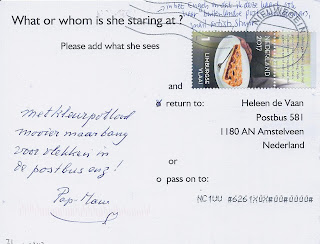 What or whom is she staring at ?
Please add what she sees
NEDERLAND
2017
LIMBURGSE
VLAAI
and
return to:
Heleen de Vaan
Postbus 581
1180 AN Amstelveen
Nederland
or
pass on to:
met kleurpotlood
mooier maar bang
voor vlekken in
de postbus enz!
Pep-Mam
NC1UU #6261X0X#00#0000#